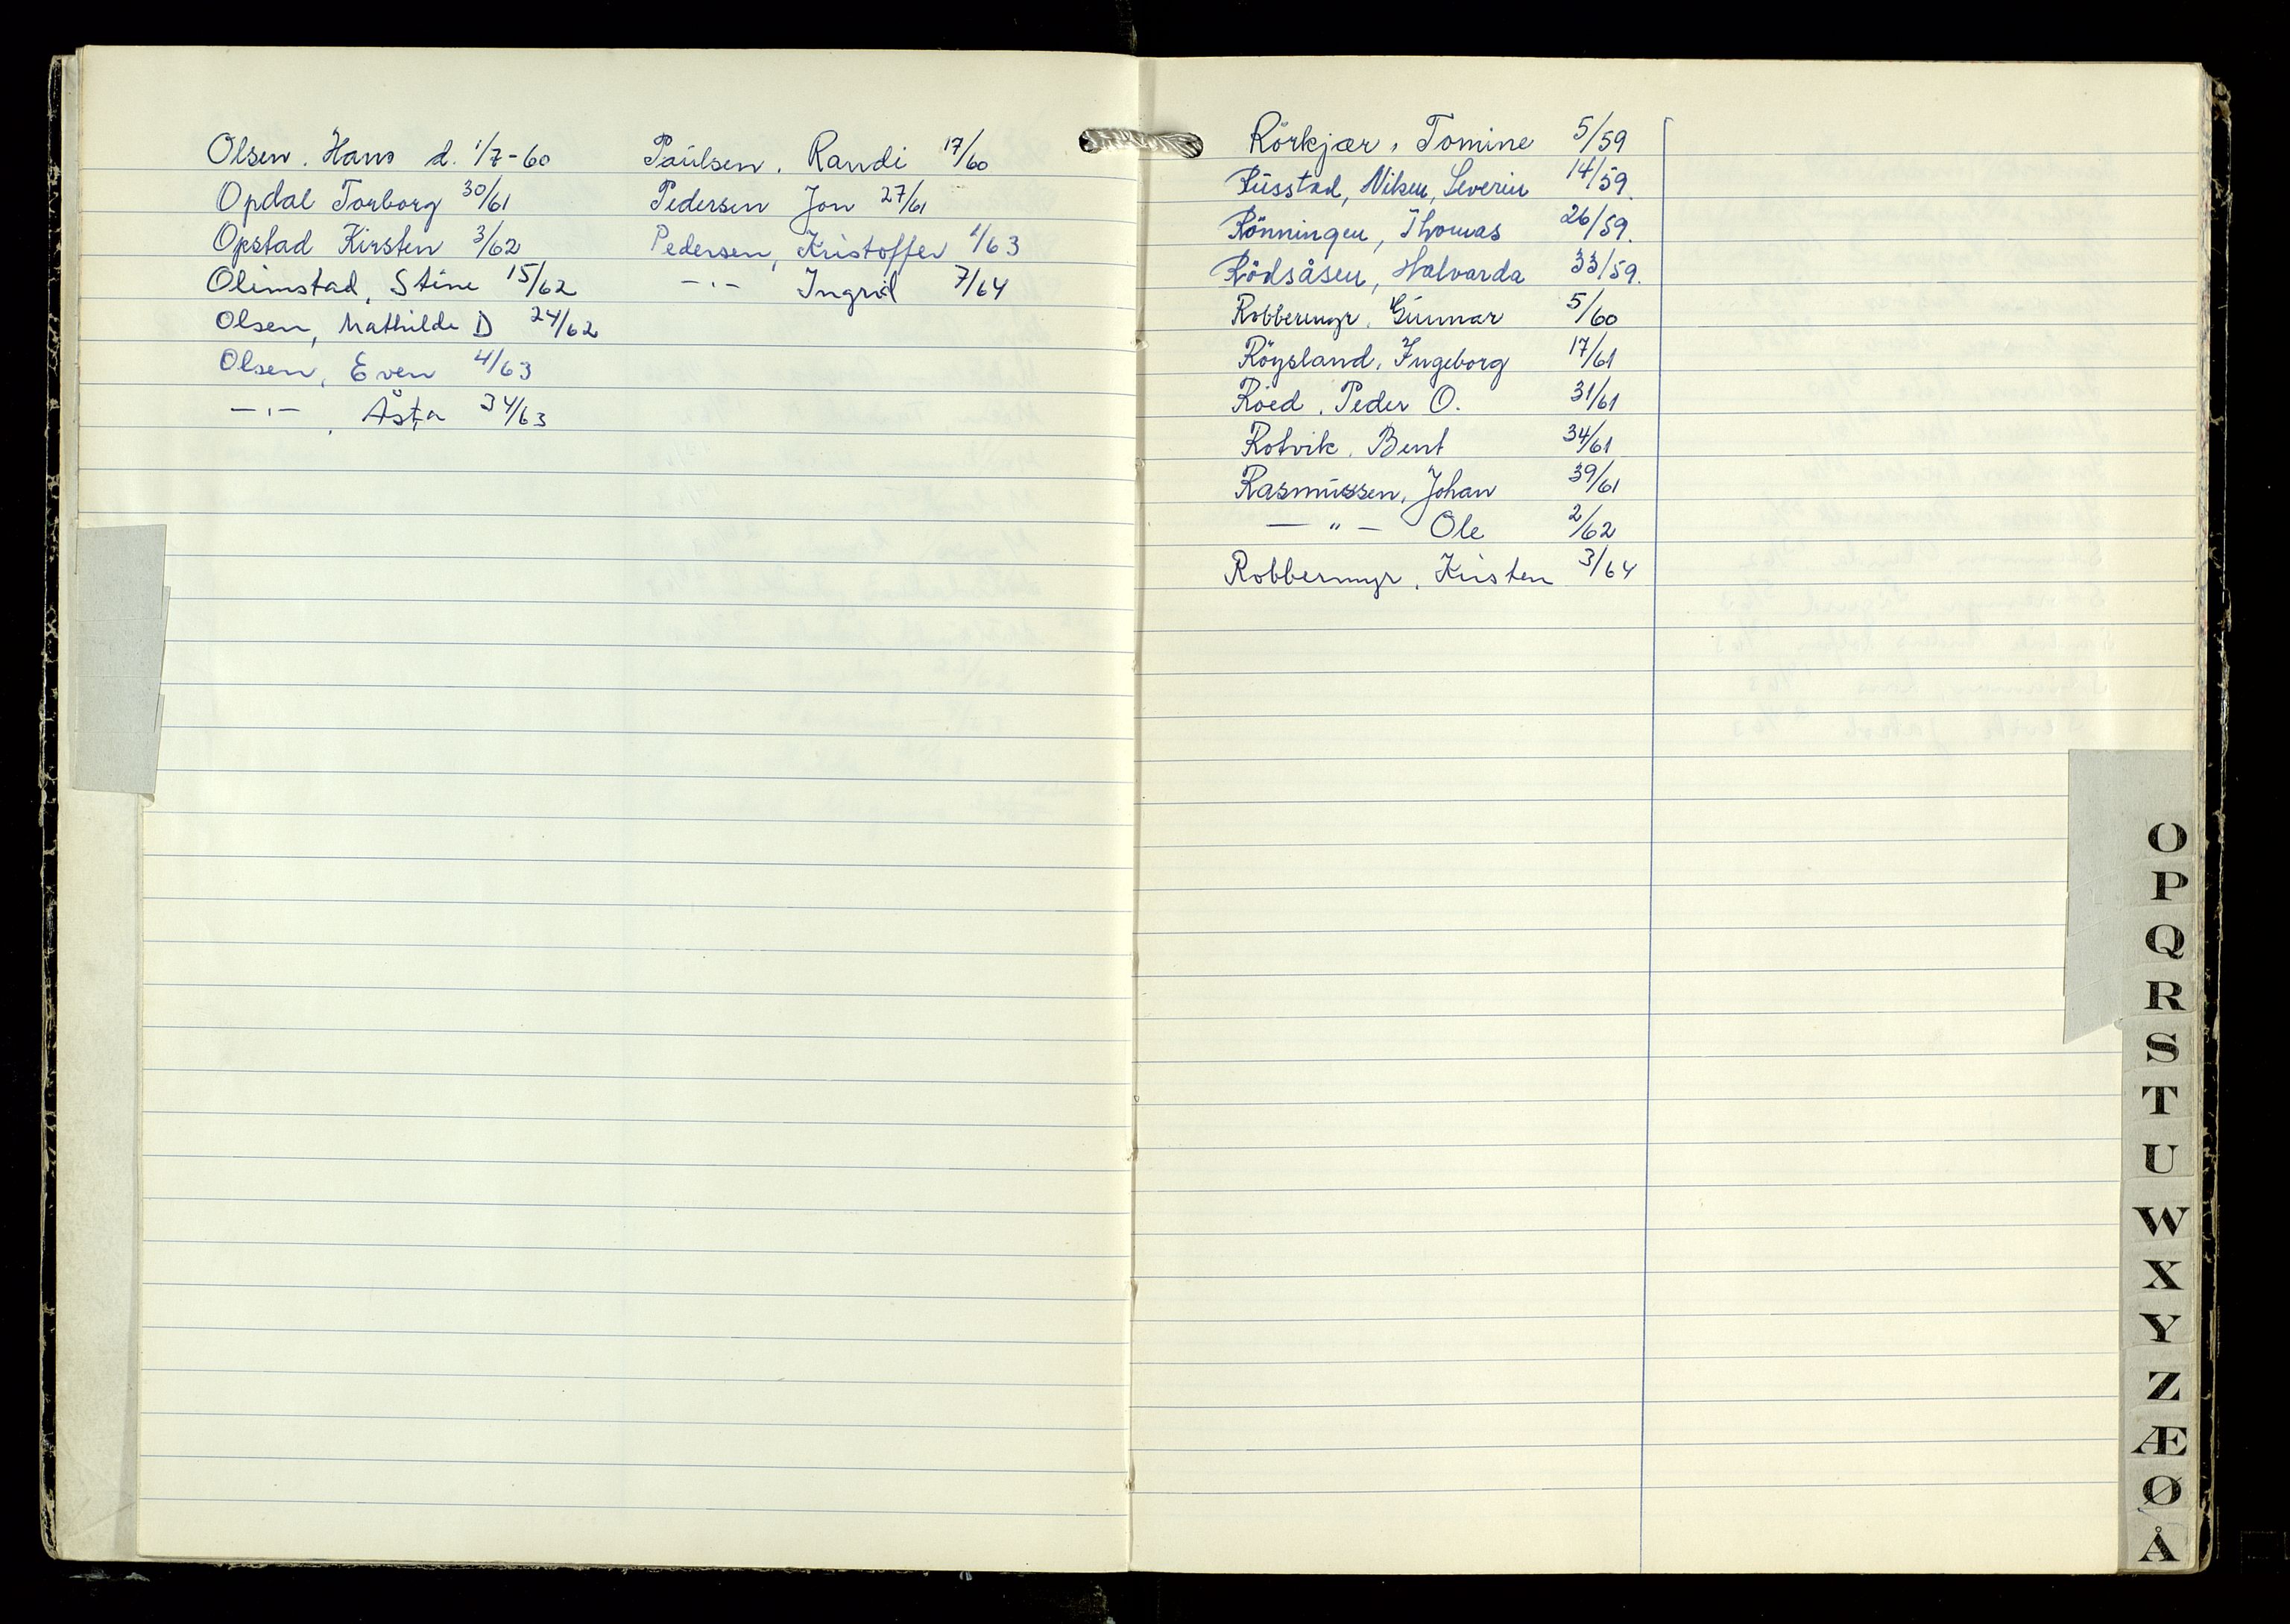 Olsen, Hans d. 1/7-60
Opdal Torborg 30/61
Opstad Kirsten 3/62
Olimstad, Stine 15/62
Olsen, Mathilde D 24/62
Olsen, Even 4/63
—„— , Åsta 34/63
Paulsen, Randi 17/60
Pedersen Jon 27/61
Pedersen, Kristoffer 1/63
—„— Ingrid 7/64
Rörkjær, Tomine 5/59
Russtad, Nilsen, Severin 14/59.
Rönningen, Thomas 26/59.
Rödsåsen, Halvarda 33/59.
Robbermyr, Gunnar 5/60
Röysland, Ingeborg 17/61
Röed, Peder O. 31/61
Rotvik, Bent 34/61
Rasmussen, Johan 39/61
—„— Ole 2/62
Robbermyr, Kristen 3/64
O
P
Q
R
S
T
U
W
X
Y
Z
Æ
Ø
Å